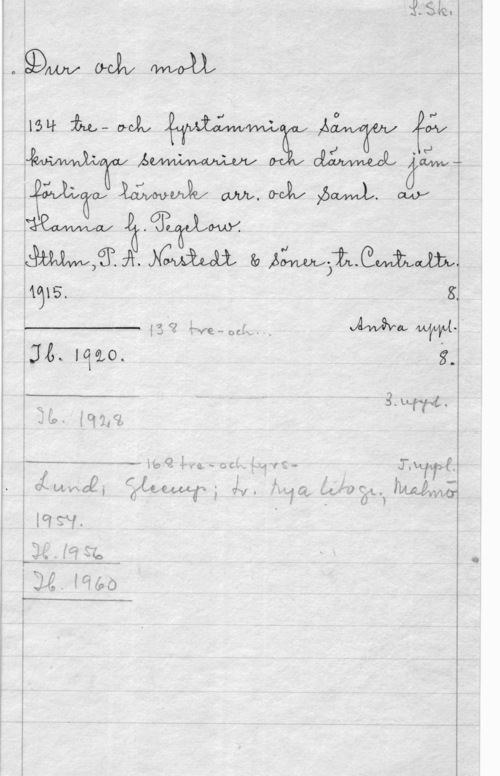 L. Sk.
Dur och moll
134 tre- och fyrstämmiga sånger för
kvinnliga seminarier och därmed jäm-
förliga läroverk arr. och saml. av
Hanna G. Pegelow.
Sthlm, P. A. Norstedt & söner; tr. Centraltr.
1915. 8.
138 tre- och... Andra uppl.
Ib. 1920. 8.
3. uppl.
Ib. 1928
168 tre- och fyrs- 5. uppl.
Lund, Gleerup; tr. Nya litogr., Malmö
1954.
Ib. 1956
Ib. 1960